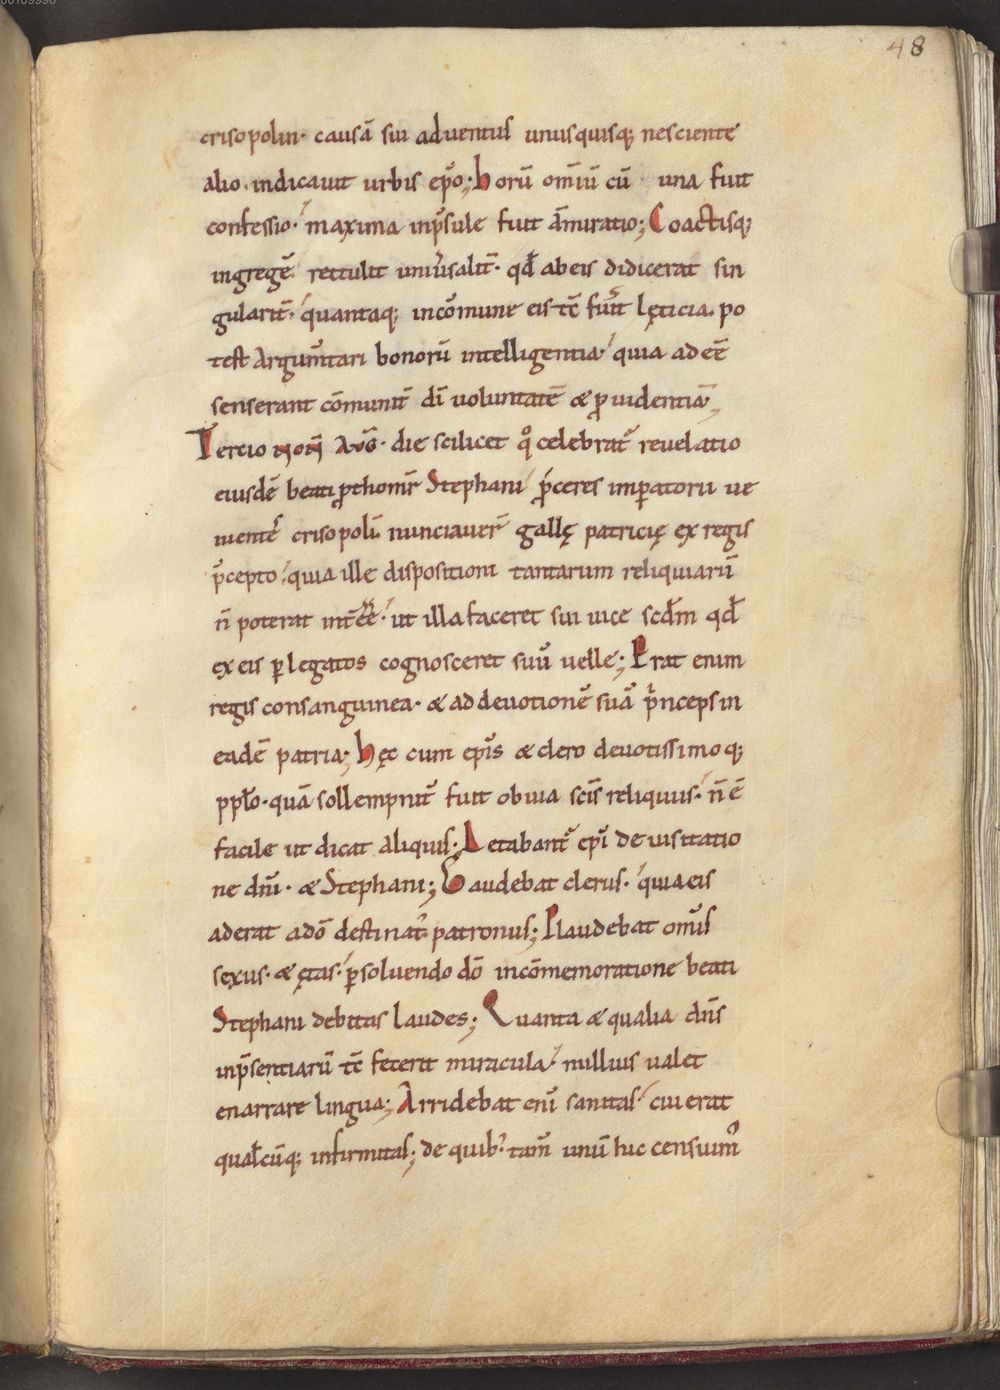 48
crisopolim· causā sui aduentus unusquisq; nesciente
alio· indicauit urbis ep̄o; horū om̄iū cū una fuit
confessio· maxima inp̄sule fuit āmiratio; Coactisq;
ingregē rettulit uniūsalit̄· qd̄ abeis didicerat sin
gularit̄· quantaq; incōmune eis tc̄ fuīt lęticia· po
test argum̄tari bonorū intelligentia· quia adeē
senserant cōmunit̄ dī uoluntatē & ꝓuidentiā;
Tercio noń aug̃· die scilicet q̊ celebrat᷑ reuelatio
eiusdē beati ꝓthom̄r Stephani p̄ceres imꝑatorii ue
nientes crisopolī· nunciauer̄ gallę patricię ex regis
p̄cepto· quia ille dispositioni tantarum reliquiarū
n̄ poterat int̄eē· ut illa faceret sui uice scd̄m qd̄
ex eis ꝑ legatos cognosceret suū uelle; Erat enim
regis consanguinea· & ad deuotionē suā p̄nceps in
eadē patria; hęc cum ep̄is & clero deuotissimo q;
pp̄lo· quā sollempnit̄ fuit obuia sc̄is reliquiis· n̄ ē
facile ut dicat aliquis; Letabant᷑ ep̄i de uisitatio
ne dn̄i· & Stephani; Gaudebat clerus· quia eis
aderat adō destinat᷒ patronus; Plaudebat om̄is
sexus· & ętas· ꝑsoluendo dō incōmemoratione beati
Stephani debitas laudes; Quanta & qualia dn̄s
inp̄sentiarū tc̄ fecerit miracula· nullius ualet
enarrare lingua; Arridebat enī sanitas· cui erat
qualcūq; infirmitas; de quib᷒ tam̄ unū huc censuim᷒